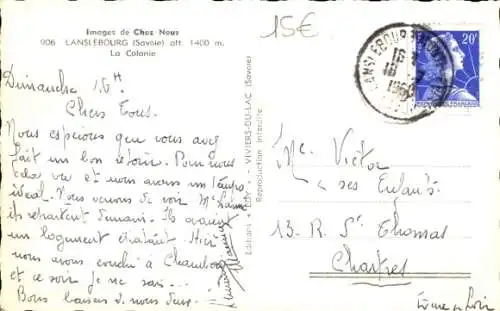 Images de Chez Nous
906 LANSLEBOURG (Savoie) alt. 1400 m.
La Colonie
Dimanche 16H
Chers Tous.
Nous espérons que vous avez
fait un bon retour. Pour nous
va et nous avons un temps
idéal. Nous venons de voir Mr
repartent demain. Ils avaient
un logement Hier
nous avons à
et ce soir je ne sais...
Bons baisers de nous deux.
Editions VIVIERS-DU-LAC (Savoie)
Reproduction interdite
15€
LANSLEBOURG
1960
20F
Me Victor
& ses Enfants
13. R. St Thomas
Chartres
Eure et Loir